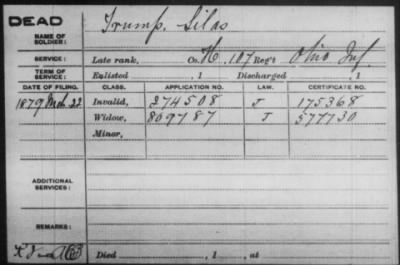 DEAD
NAME OF SOLDIER: Trump, Silas
SERVICE: Late rank, Co. H, 107 Reg't Ohio Inf.
TERM OF SERVICE: Enlisted , 1 Discharged , 1
DATE OF FILING. CLASS. APPLICATION NO. LAW. CERTIFICATE NO.
1879 Mch 22 Invalid, 274508 J 175368
Widow, 809787 J 577730
Minor,
ADDITIONAL SERVICES:
REMARKS:
Died , 1 , at